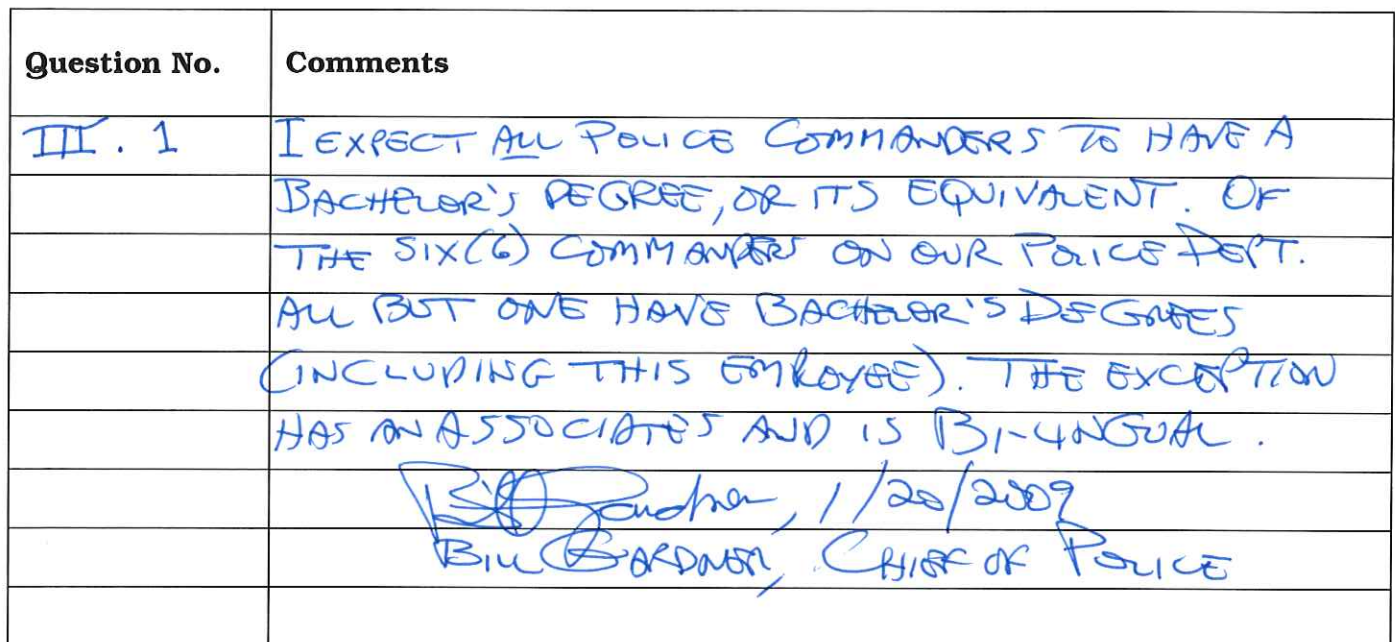 Question No. Comments
III. 1 I EXPECT ALL POLICE COMMANDERS TO HAVE A
BACHELOR'S DEGREE, OR ITS EQUIVALENT. OF
THE SIX (6) COMMANDERS ON OUR POLICE DEPT.
ALL BUT ONE HAVE BACHELOR'S DEGREES
(INCLUDING THIS EMPLOYEE). THE EXCEPTION
HAS AN ASSOCIATES AND IS BI-LINGUAL.
Bill Gardner, 1/20/2009
BILL GARDNER, CHIEF OF POLICE